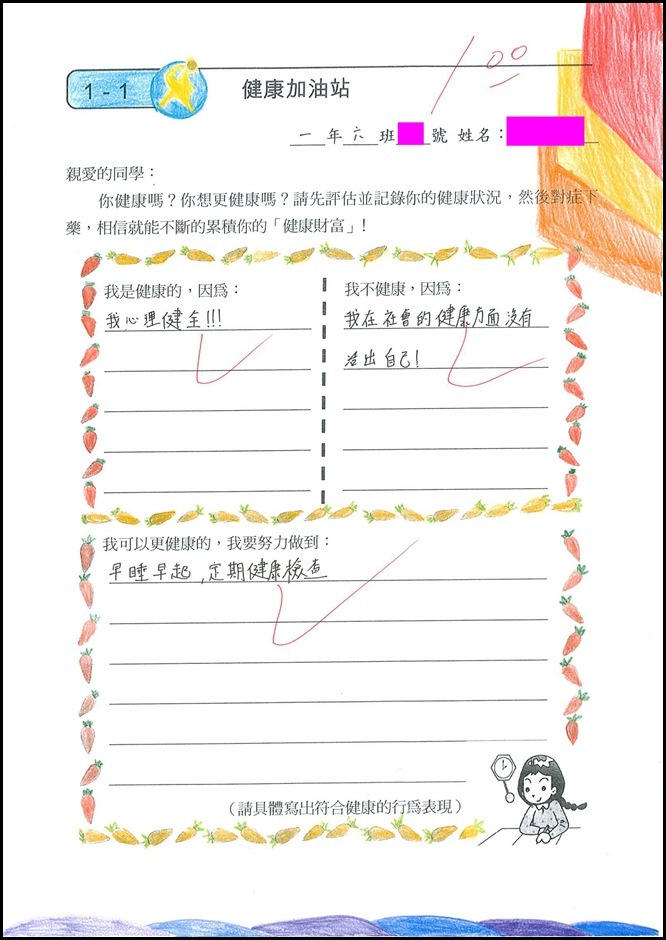 1-1
健康加油站
100
一年六班 號 姓名：
親愛的同學：
你健康嗎？你想更健康嗎？請先評估並記錄你的健康狀況，然後對症下
藥，相信就能不斷的累積你的「健康財富」！
我是健康的，因為：
我心理健全!!!
我不健康，因為：
我在社會的健康方面沒有
活出自己!
我可以更健康的，我要努力做到：
早睡早起,定期健康檢查
（請具體寫出符合健康的行為表現）